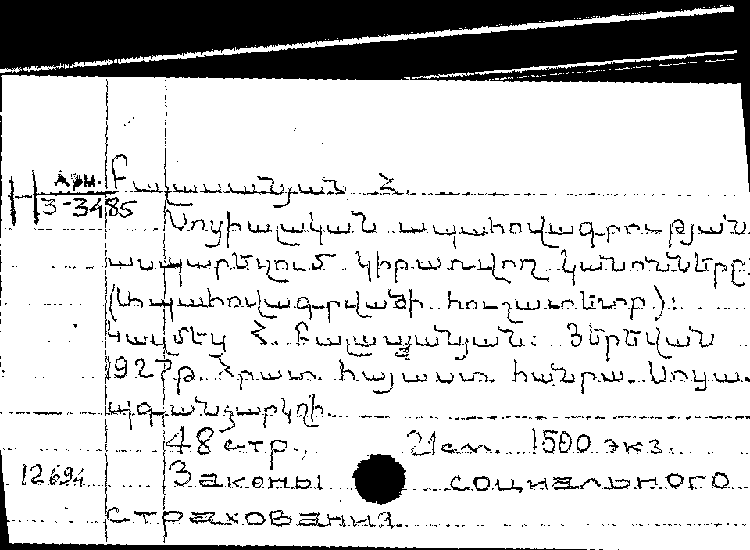 Арм. Բալասանյան Հ.
3-3485
Սոցիալական ապահովագրության
ասպարեզում կիրառվող կանոնները:
(Ապահովագրվածի հուշատետր):
Կազմեց Հ. Բալասանյան: Յերեվան
1927թ. Հրատ. հայաստ. հանրա. Սոցա.
ապգանձարկղի.
48 стр., 21 см. 1500 экз.
12694 Законы социального
страхования.